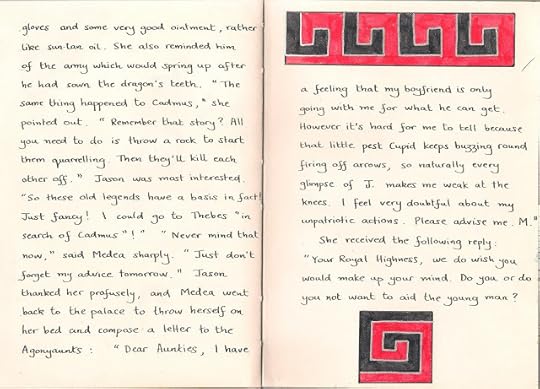 gloves and some very good ointment, rather
like sun-tan oil. She also reminded him
of the army which would spring up after
he had sown the dragon's teeth. "The
same thing happened to Cadmus," she
pointed out. "Remember that story? All
you need to do is throw a rock to start
them quarrelling. Then they'll kill each
other off." Jason was most interested.
"So these old legends have a basis in fact!
Just fancy! I could go to Thebes "in
search of Cadmus"!" "Never mind that
now," said Medea sharply. "Just don't
forget my advice tomorrow." Jason
thanked her profusely, and Medea went
back to the palace to throw herself on
her bed and compose a letter to the
Agonyaunts: "Dear Aunties, I have
a feeling that my boyfriend is only
going with me for what he can get.
However it's hard for me to tell because
that little pest Cupid keeps buzzing round
firing off arrows, so naturally every
glimpse of J. makes me weak at the
knees. I feel very doubtful about my
unpatriotic actions. Please advise me. M."
She received the following reply:
"Your Royal Highness, we do wish you
would make up your mind. Do you or do
you not want to aid the young man?